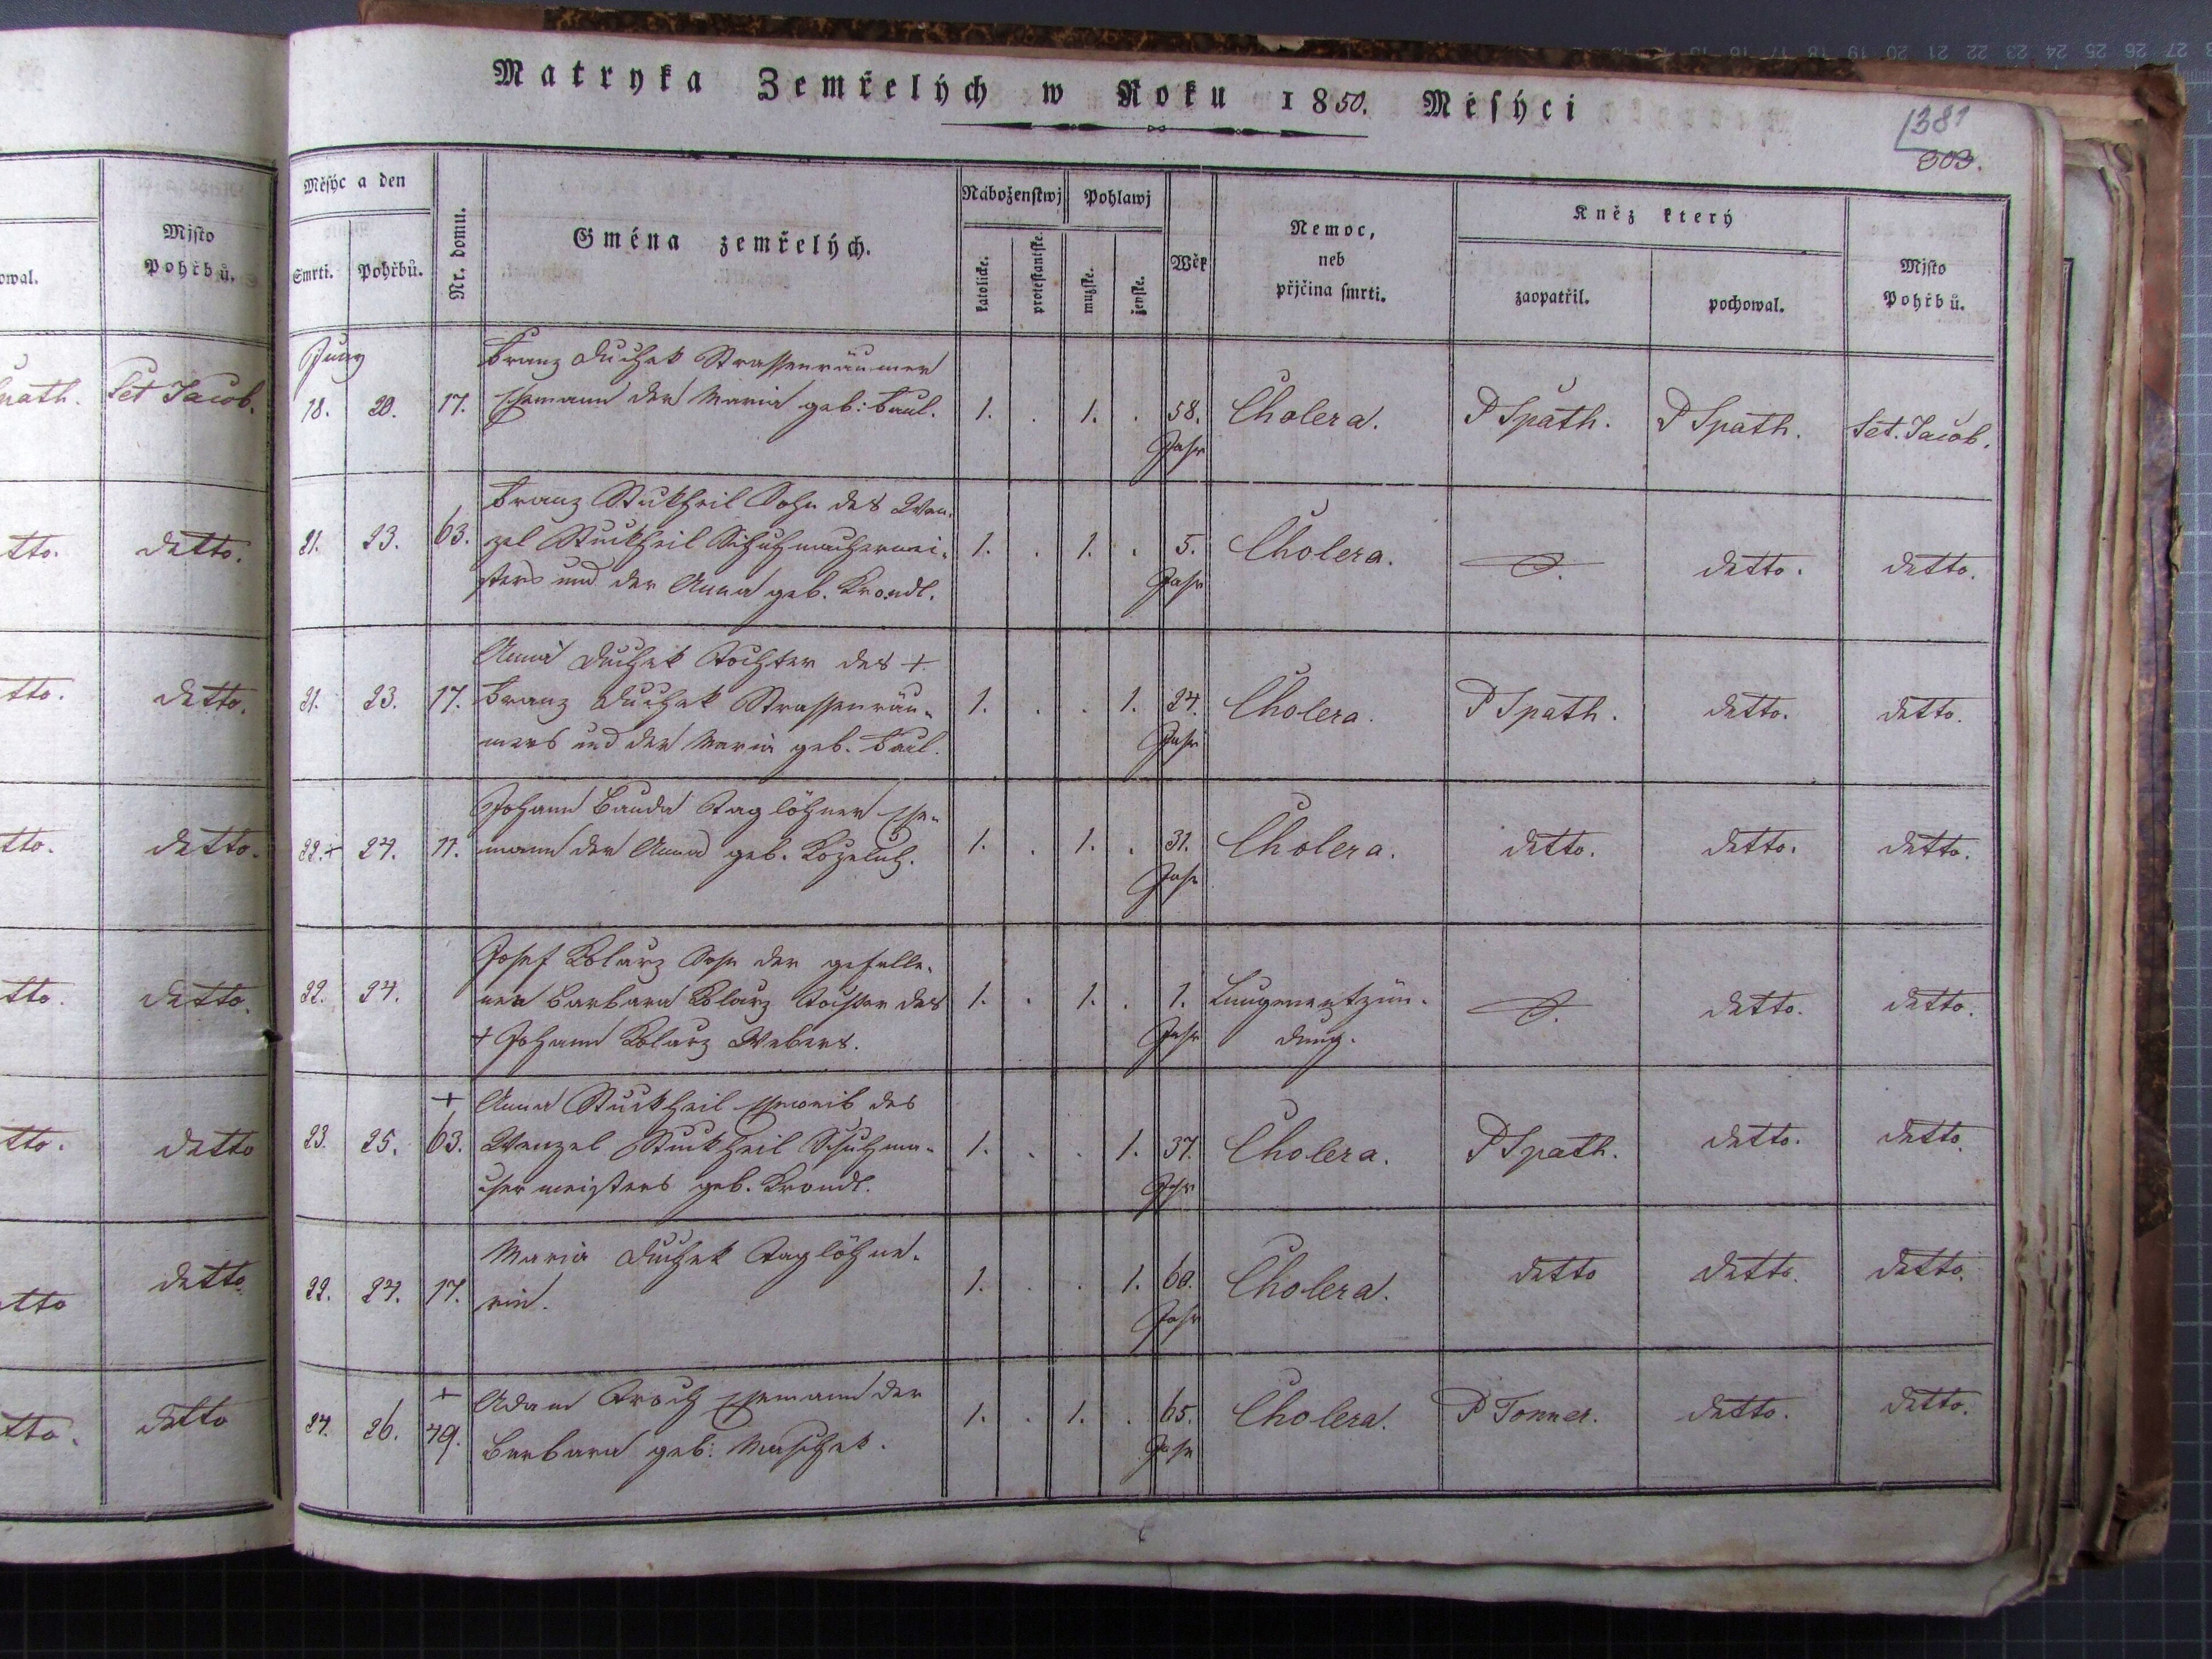 Matryka Zemřelých w Roku 1850. Měsýci
381
303.
Měsýc a den
Smrti.
Pohřbů.
Nr. domu.
Gména zemřelých.
Náboženstwj
katolické.
protestantské.
Pohlawj
mužské.
ženské.
Wěk
Nemoc,
neb
přjčina smrti.
Kněz který
zaopatřil.
pochowal.
Mjsto
Pohřbů.
owal.
Mjsto
Pohřbů.
Sct Jacob.
tto. detto.
tto. detto.
tto. detto.
tto. detto.
tto. detto
tto detto
tto. detto
Juny
Franz Duchek Strassenräumer
18. 20. 17. Ehemann der Maria geb: Faul. 1. . 1. . 58. Cholera. P Späth. P Späth. Sct. Jacob.
Jahr
Franz Stuckheil Sohn des Wen-
21. 23. 63. zel Stuckheil Schuhmachermei- 1. . 1. . 5. Cholera. detto. detto.
sters und der Anna geb. Krondl. Jahr
Anna Duchek Tochter des +
21. 23. 17. Franz Duchek Strassenräu- 1. . . 1. 24. Cholera. P Spath. detto. detto.
mers und der Maria geb. Faul. Jahr
Johann Bauda Taglöhner Ehe-
22.+ 24. 11. mann der Anna geb. Kozeluh. 1. . 1. . 31. Cholera. detto. detto. detto.
Jahr
Josef Kolarz Sohn der gefalle-
22. 24. nen Barbara Kolarz Tochter des 1. . 1. . 1. Lungenentzün- detto. detto.
+ Johann Kolarz Webers. Jahr dung.
+ Anna Stuckheil Eheweib des
23. 25. 63. Wenzel Stuckheil Schuhma- 1. . . 1. 37. Cholera. P Spath. detto. detto.
chermeisters geb. Krondl. Jahr
Maria Duchek Taglöhne-
22. 24. 17. rin. 1. . . 1. 60. Cholera. detto detto. detto.
Jahr
+ Adam Ehemann der
24. 26. 49. Barbara geb: Maschek. 1. . 1. . 65. Cholera. P Tonner. detto. detto.
Jahr